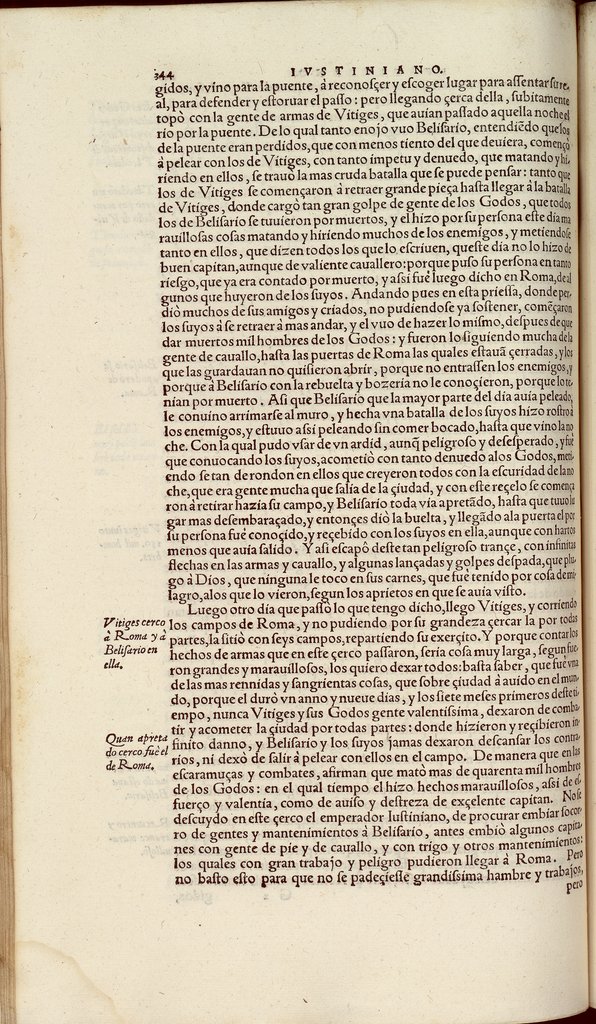 344
IVSTINIANO.
gidos, y vino para la puente, à reconosçer y escoger lugar para assentar su re,
al, para defender y estoruar el passo: pero llegando çerca della, subitamente
topò con la gente de armas de Vitiges, que auian passado aquella noche el
rio por la puente. De lo qual tanto enojo vuo Belisario, entendiẽdo que los
de la puente eran perdidos, que con menos tiento del que deuiera, començò
à pelear con los de Vitiges, con tanto impetu y denuedo, que matando y hi,
riendo en ellos, se trauò la mas cruda batalla que se puede pensar: tanto que
los de Vitiges se començaron à retraer grande pieça hasta llegar à la batalla
de Vitiges, donde cargò tan gran golpe de gente de los Godos, que todos
los de Belisario se tuuieron por muertos, y el hizo por su persona este dia ma
rauillosas cosas matando y hiriendo muchos de los enemigos, y metiendose
tanto en ellos, que dizen todos los que lo escriuen, queste dia no lo hizo de
buen capitan, aunque de valiente cauallero: porque puso su persona en tanto
riesgo, que ya era contado por muerto, y assi fuè luego dicho en Roma, de al
gunos que huyeron de los suyos. Andando pues en esta priessa, donde per,
diò muchos de sus amigos y criados, no pudiendose ya sostener, comẽçaron
los suyos à se retraer à mas andar, y el vuo de hazer lo mismo, despues de que
dar muertos mil hombres de los Godos: y fueron lo siguiendo mucha de la
gente de cauallo, hasta las puertas de Roma las quales estauã çerradas, y los
que las guardauan no quisieron abrir, porque no entrassen los enemigos, y
porque à Belisario con la rebuelta y bozeria no le conoçieron, porque lo te,
nian por muerto. Asi que Belisario que la mayor parte del dia auia peleado,
le conuino arrimarse al muro, y hecha vna batalla de los suyos hizo rostro à
los enemigos, y estuuo assi peleando sin comer bocado, hasta que vino la no
che. Con la qual pudo vsar de vn ardid, aunq̃ peligroso y desesperado, y fuè
que conuocando los suyos, acometiò con tanto denuedo alos Godos, meti,
endo se tan de rondon en ellos que creyeron todos con la escuridad de la no
che, que era gente mucha que salia de la çiudad, y con este reçelo se comença
ron à retirar hazia su campo, y Belisario toda via apretãdo, hasta que tuuo lu
gar mas desembaraçado, y entonçes diò la buelta, y llegãdo ala puerta el por
su persona fuè conoçido, y reçebido con los suyos en ella, aunque con hartos
menos que auia salido. Y asi escapò deste tan peligroso trançe, con infinitas
flechas en las armas y cauallo, y algunas lançadas y golpes despada, que plu,
go à Dios, que ninguna le toco en sus carnes, que fuè tenido por cosa de mi,
lagro, alos que lo vieron, segun los aprietos en que se auia visto.
Luego otro dia que passò lo que tengo dicho, llego Vitiges, y corriendo
los campos de Roma, y no pudiendo por su grandeza çercar la por todas
partes, la sitiò con seys campos, repartiendo su exerçito. Y porque contar los
hechos de armas que en este çerco passaron, seria cosa muy larga, segun fue,
ron grandes y marauillosos, los quiero dexar todos: basta saber, que fuè vna
de las mas rennidas y sangrientas cosas, que sobre çiudad à auido en el mun,
do, porque el durò vn anno y nueue dias, y los siete meses primeros deste ti
empo, nunca Vitiges y sus Godos gente valentissima, dexaron de comba,
tir y acometer la çiudad por todas partes: donde hizieron y reçibieron in,
finito danno, y Belisario y los suyos jamas dexaron descansar los contra,
rios, ni dexò de salir à pelear con ellos en el campo. De manera que en las
escaramuças y combates, afirman que matò mas de quarenta mil hombres
de los Godos: en el qual tiempo el hizo hechos marauillosos, assi de es,
fuerço y valentia, como de auiso y destreza de exçelente capitan. No se
descuydo en este çerco el emperador Iustiniano, de procurar embiar socor,
ro de gentes y mantenimientos à Belisario, antes embiò algunos capita,
nes con gente de pie y de cauallo, y con trigo y otros mantenimientos:
los quales con gran trabajo y peligro pudieron llegar à Roma. Pero
no basto esto para que no se padeçiesse grandissima hambre y trabajos,
pero
Vitiges cerco
à Roma y à
Belisario en
ella.
Quan apreta
do cerco fuè el
de Roma.